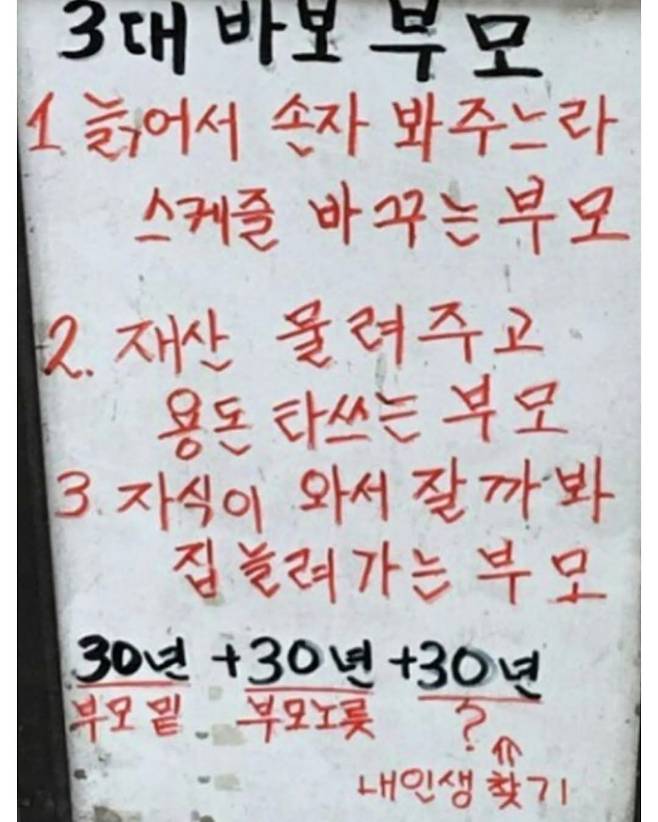 3대 바보 부모
1. 늙어서 손자 봐주느라
스케줄 바꾸는 부모
2. 재산 물려주고
용돈 타쓰는 부모
3. 자식이 와서 잘까봐
집 늘려가는 부모
30년 +30년 +30년
부모 밑 부모노릇 ?
⇑
내인생 찾기